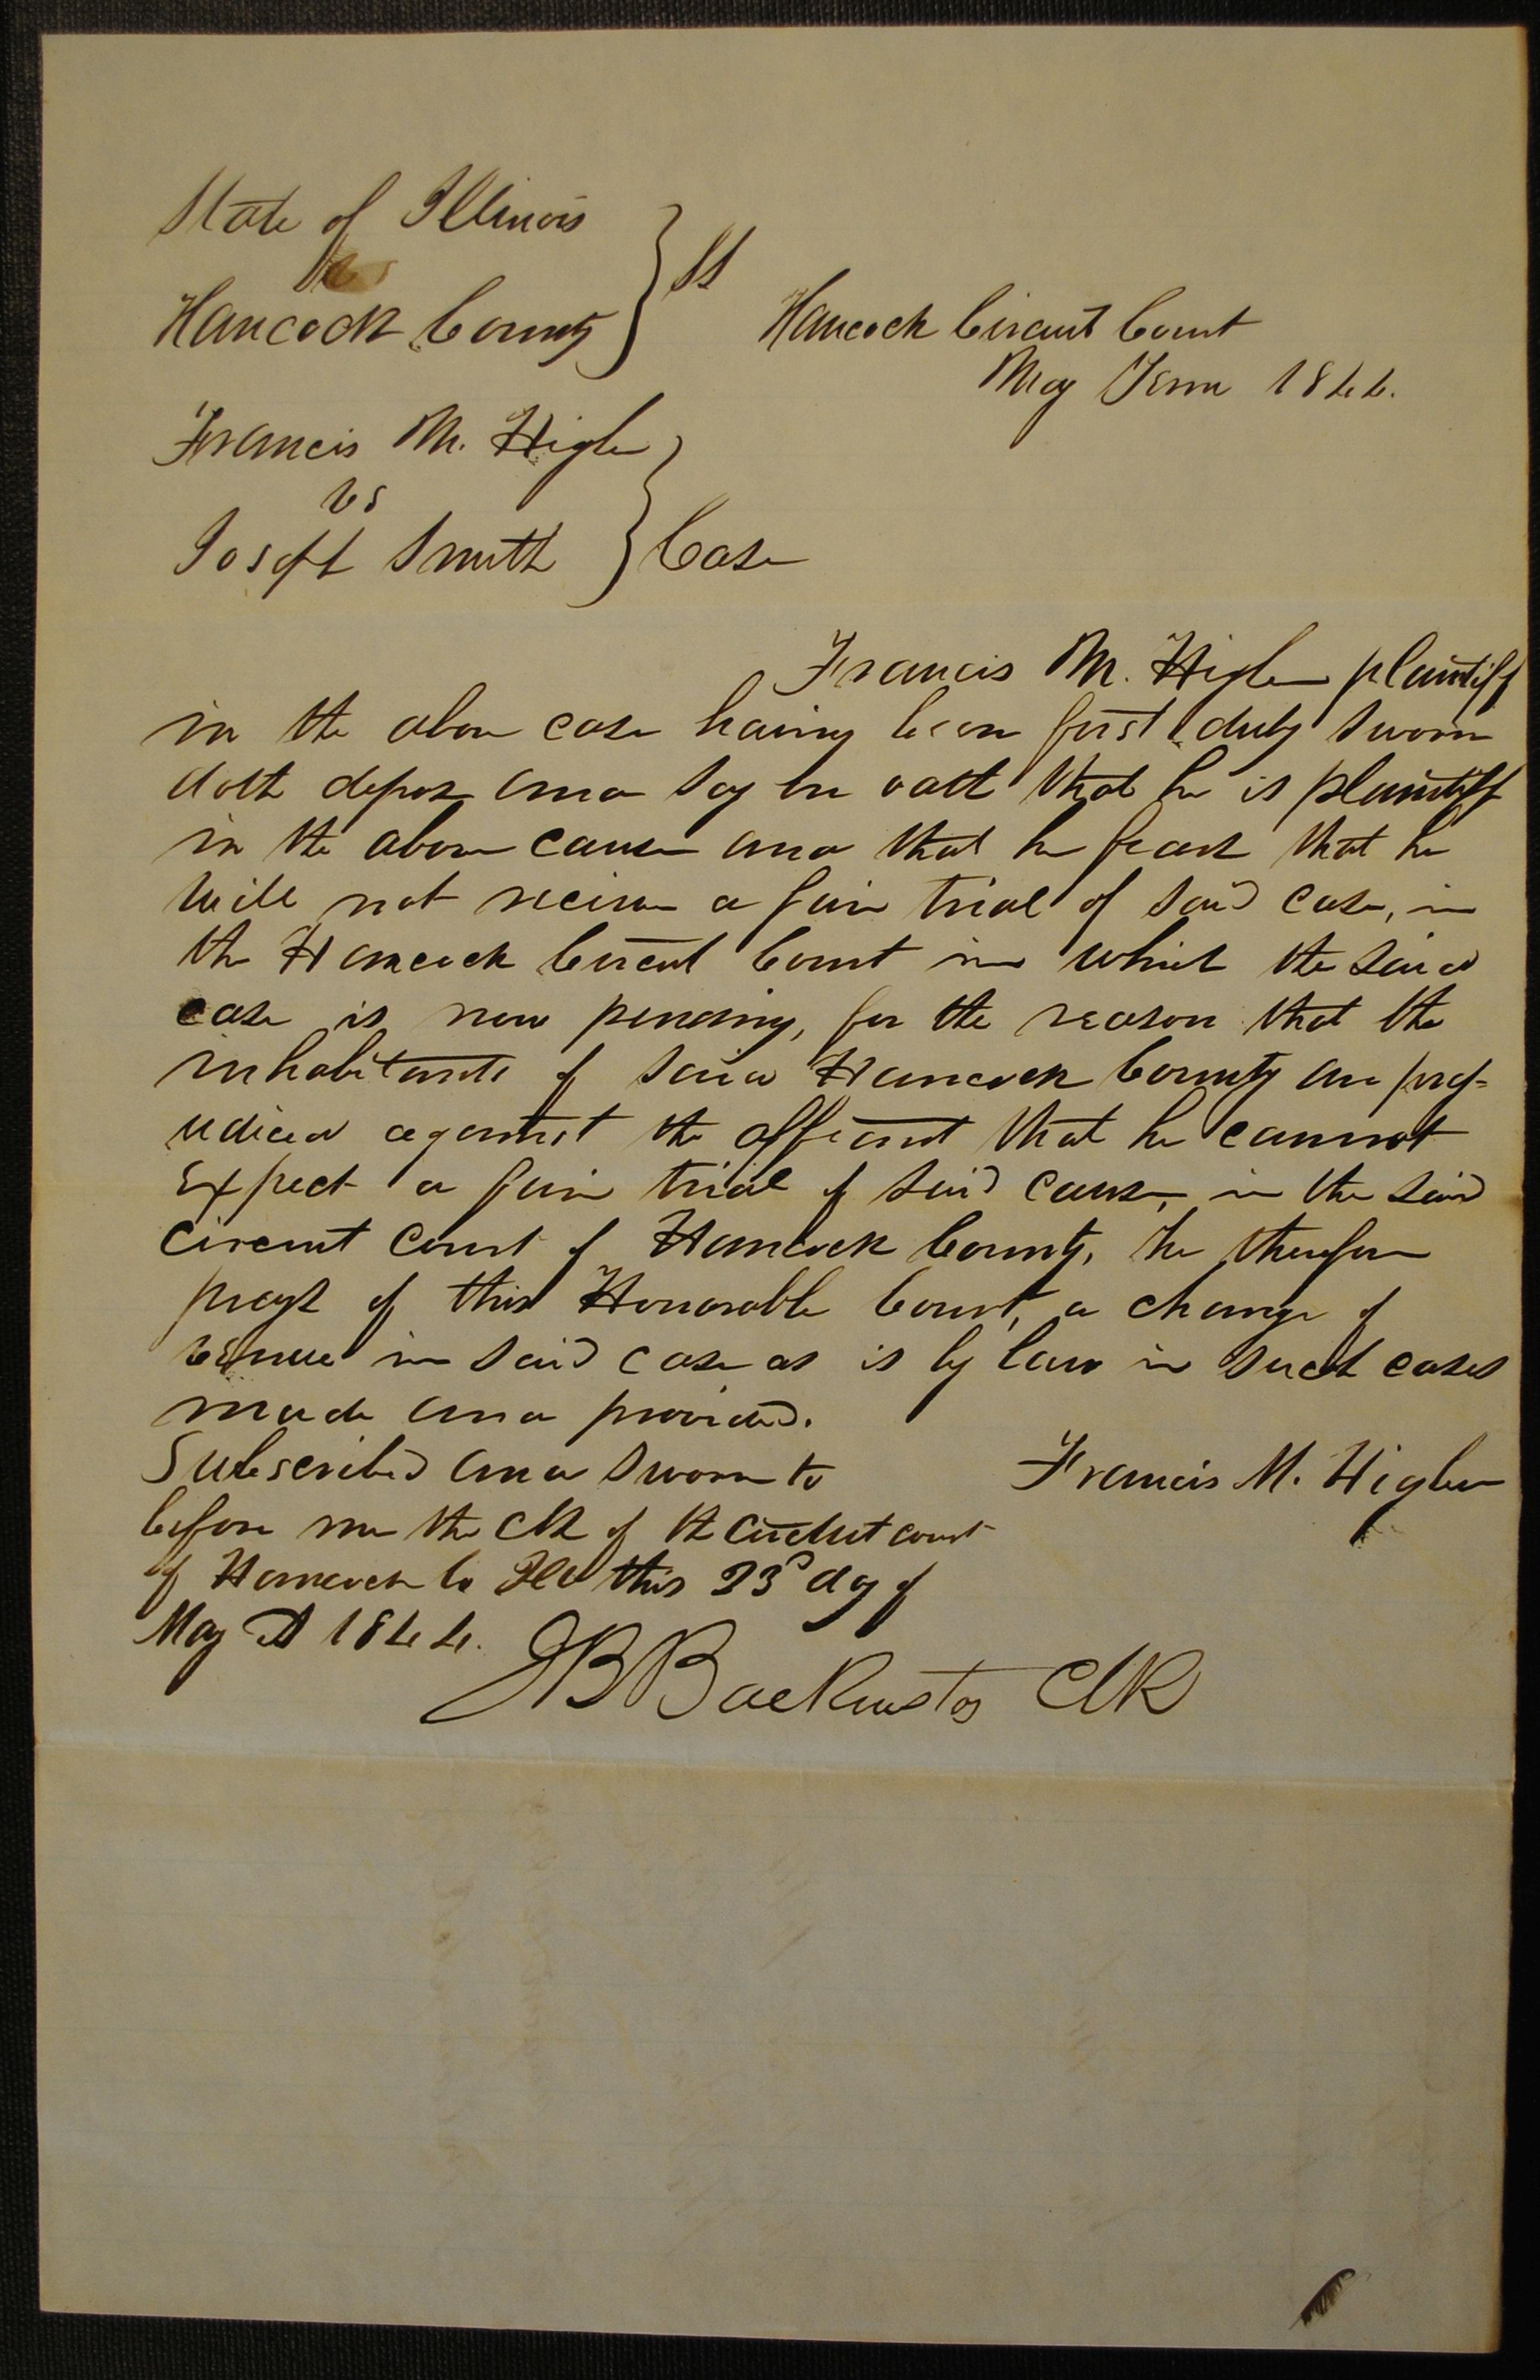 State of Illinois
Hancock County } SS
Hancock Circuit Court
May Term 1844.
Francis M. Higbee
vs
Joseph Smith } Case
Francis M. Higbee plaintiff
in the above case having been first duly sworn
doth depose and say on oath that he is plaintiff
in the above cause and that he fears that he
will not recieve a fair trial of said case, in
the Hancock Circuit Court in which the said
case is now pending, for the reason that the
inhabitants of said Hancock County are prej-
udiced against the affiant that he cannot
expect a fair trial of said cause, in the said
circuit court of Hancock County, he therefore
prays of this Honorable Court, a change of
venue in said case as is by law in such cases
made and provided.
Subscribed and sworn to
Francis M. Higbee
before me the Clk of the circuit court
of Hancock Co Ill this 23d day of
May AD 1844.
JB Backenstos Clk